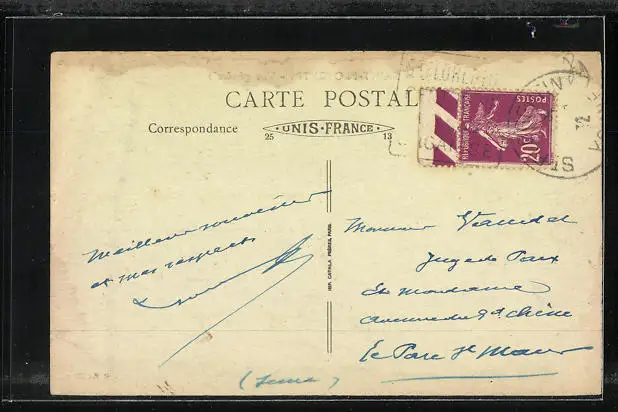 CARTE POSTALE
Correspondance
UNIS-FRANCE
25 13
POSTES
20c
REPUBLIQUE FRANÇAISE
IMP. CATALA FRÈRES, PARIS
Meilleur souvenir
et mes respects
Monsieur
Juge de Paix
Et Madame
avenue de
Le Parc St Maur
(Seine)